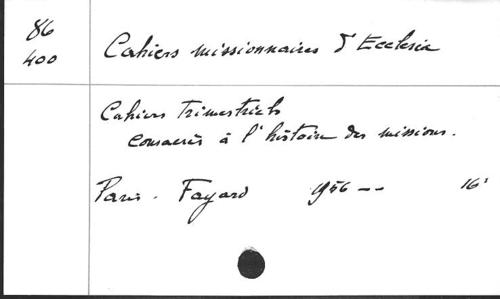 86
400
Cahiers missionnaires d'Ecclesia
Cahiers Trimestriels
consacrés à l'histoire des missions.
Paris. Fayard 1956 -- 16°